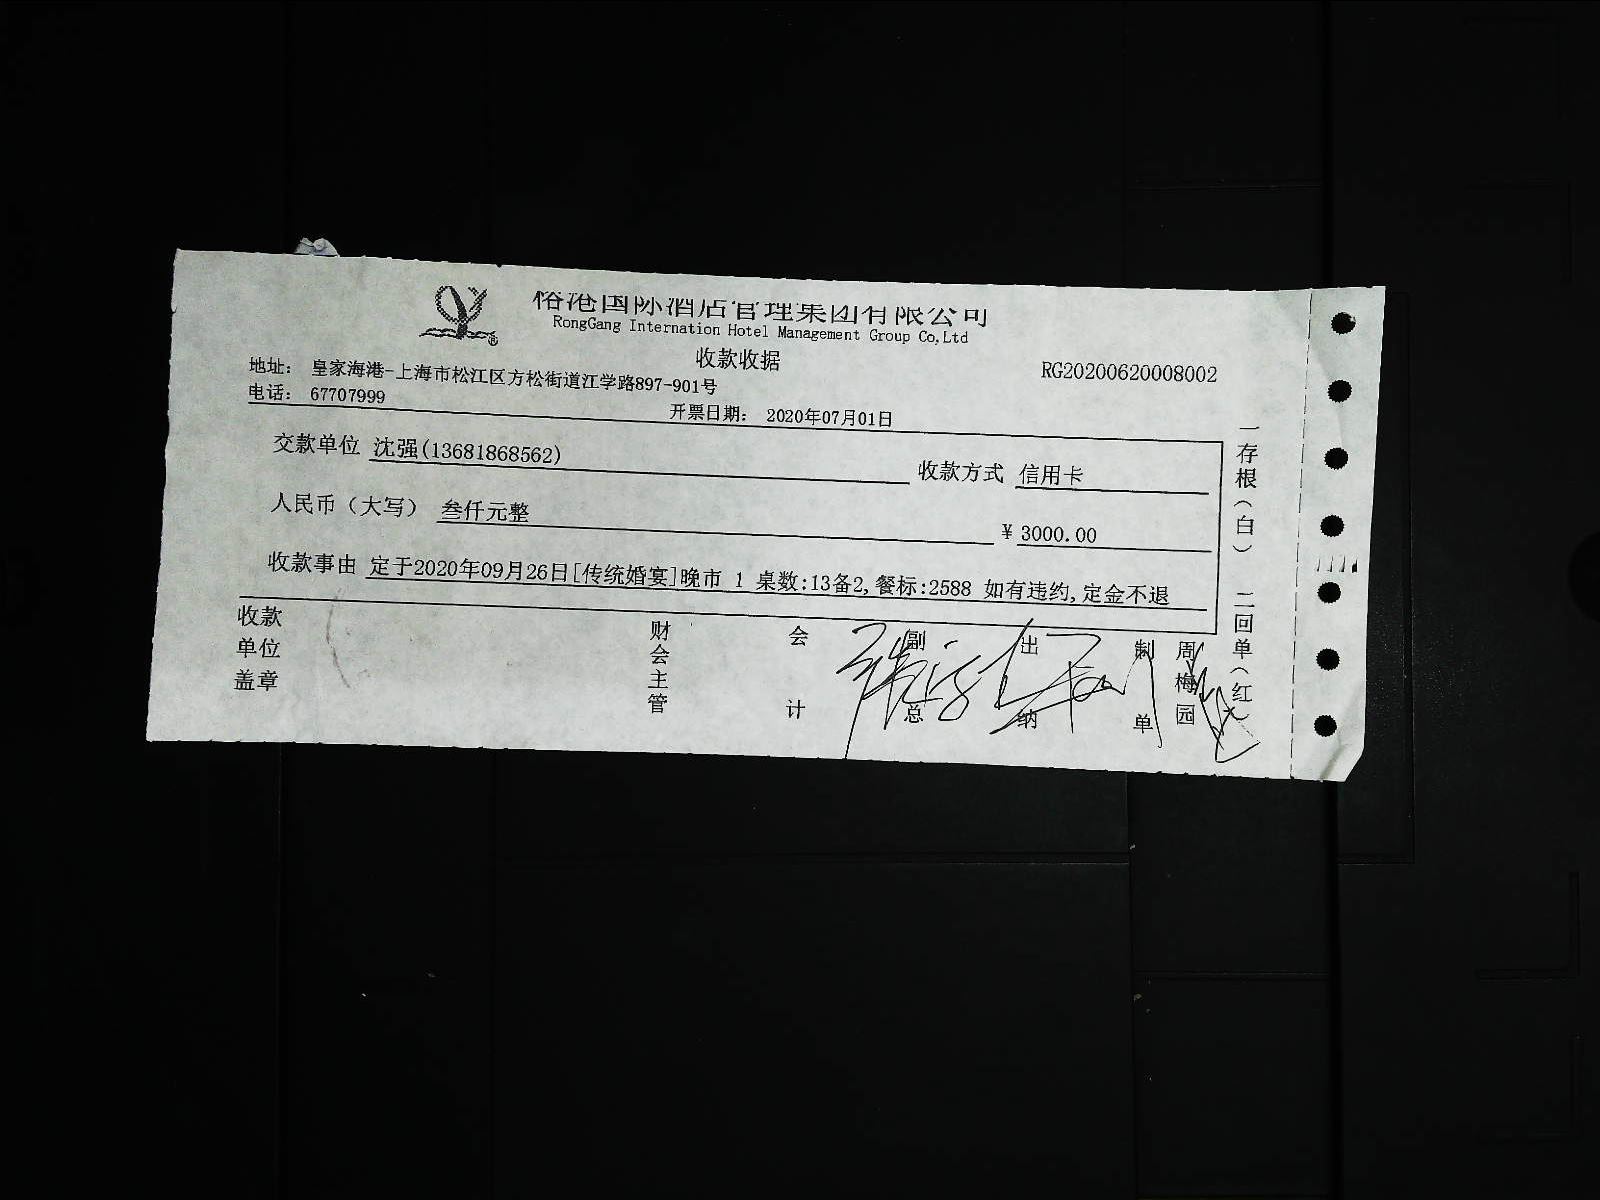 国际酒店管理集团有限公司
RongGang Internation Hotel Management Group Co,Ltd
收款收据
地址： 皇家海港-上海市松江区方松街道江学路897-901号
RG20200620008002
电话： 67707999
开票日期： 2020年07月01日
交款单位 沈强(13681868562)
收款方式 信用卡
人民币（大写） 叁仟元整
¥ 3000.00
收款事由 定于2020年09月26日[传统婚宴]晚市 1 桌数:13备2,餐标:2588 如有违约,定金不退
收款单位盖章
财会主管
会计
副总
出纳
制单
周梅园
一存根（白） 二回单（红）